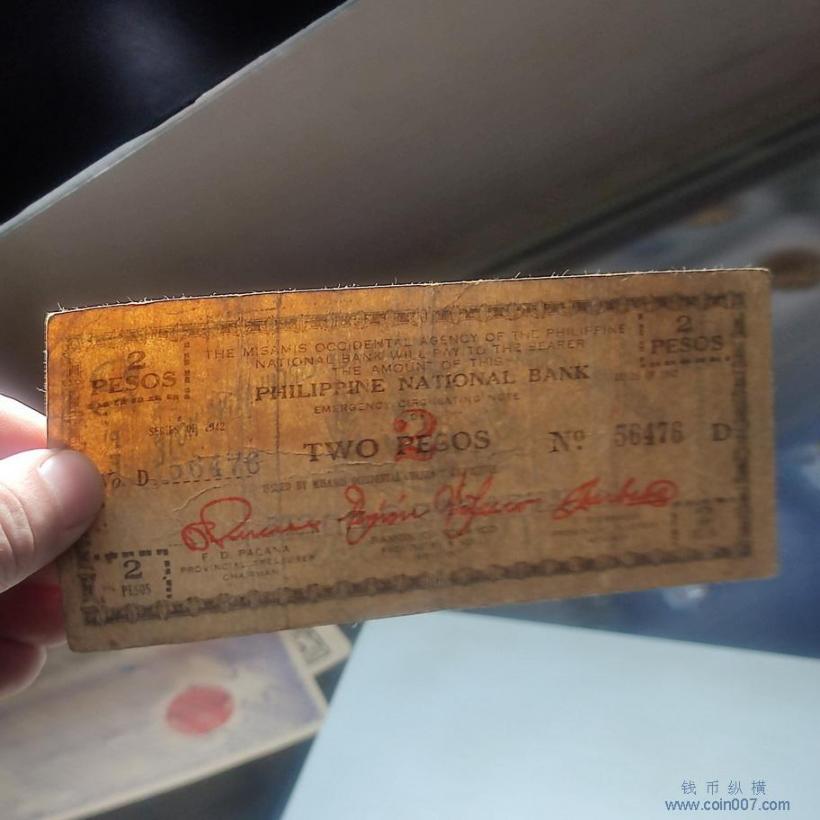 2
PESOS
THE MISAMIS OCCIDENTAL AGENCY OF THE PHILIPPINE
NATIONAL BANK WILL PAY TO THE BEARER
THE AMOUNT OF THIS
PHILIPPINE NATIONAL BANK
EMERGENCY CIRCULATING NOTE
2
PESOS
SERIES OF 1942
TWO PESOS
2
Nº 56476 D
No. D 56476
F. D. PACANA
PROVINCIAL TREASURER
CHAIRMAN
2
PESOS
钱币纵横
www.coin007.com